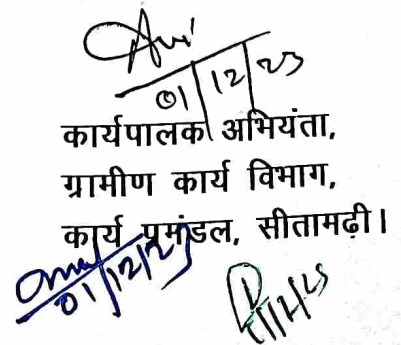 01/12/23
कार्यपालक अभियंता,
ग्रामीण कार्य विभाग,
कार्य प्रमंडल, सीतामढ़ी।
01/12/23